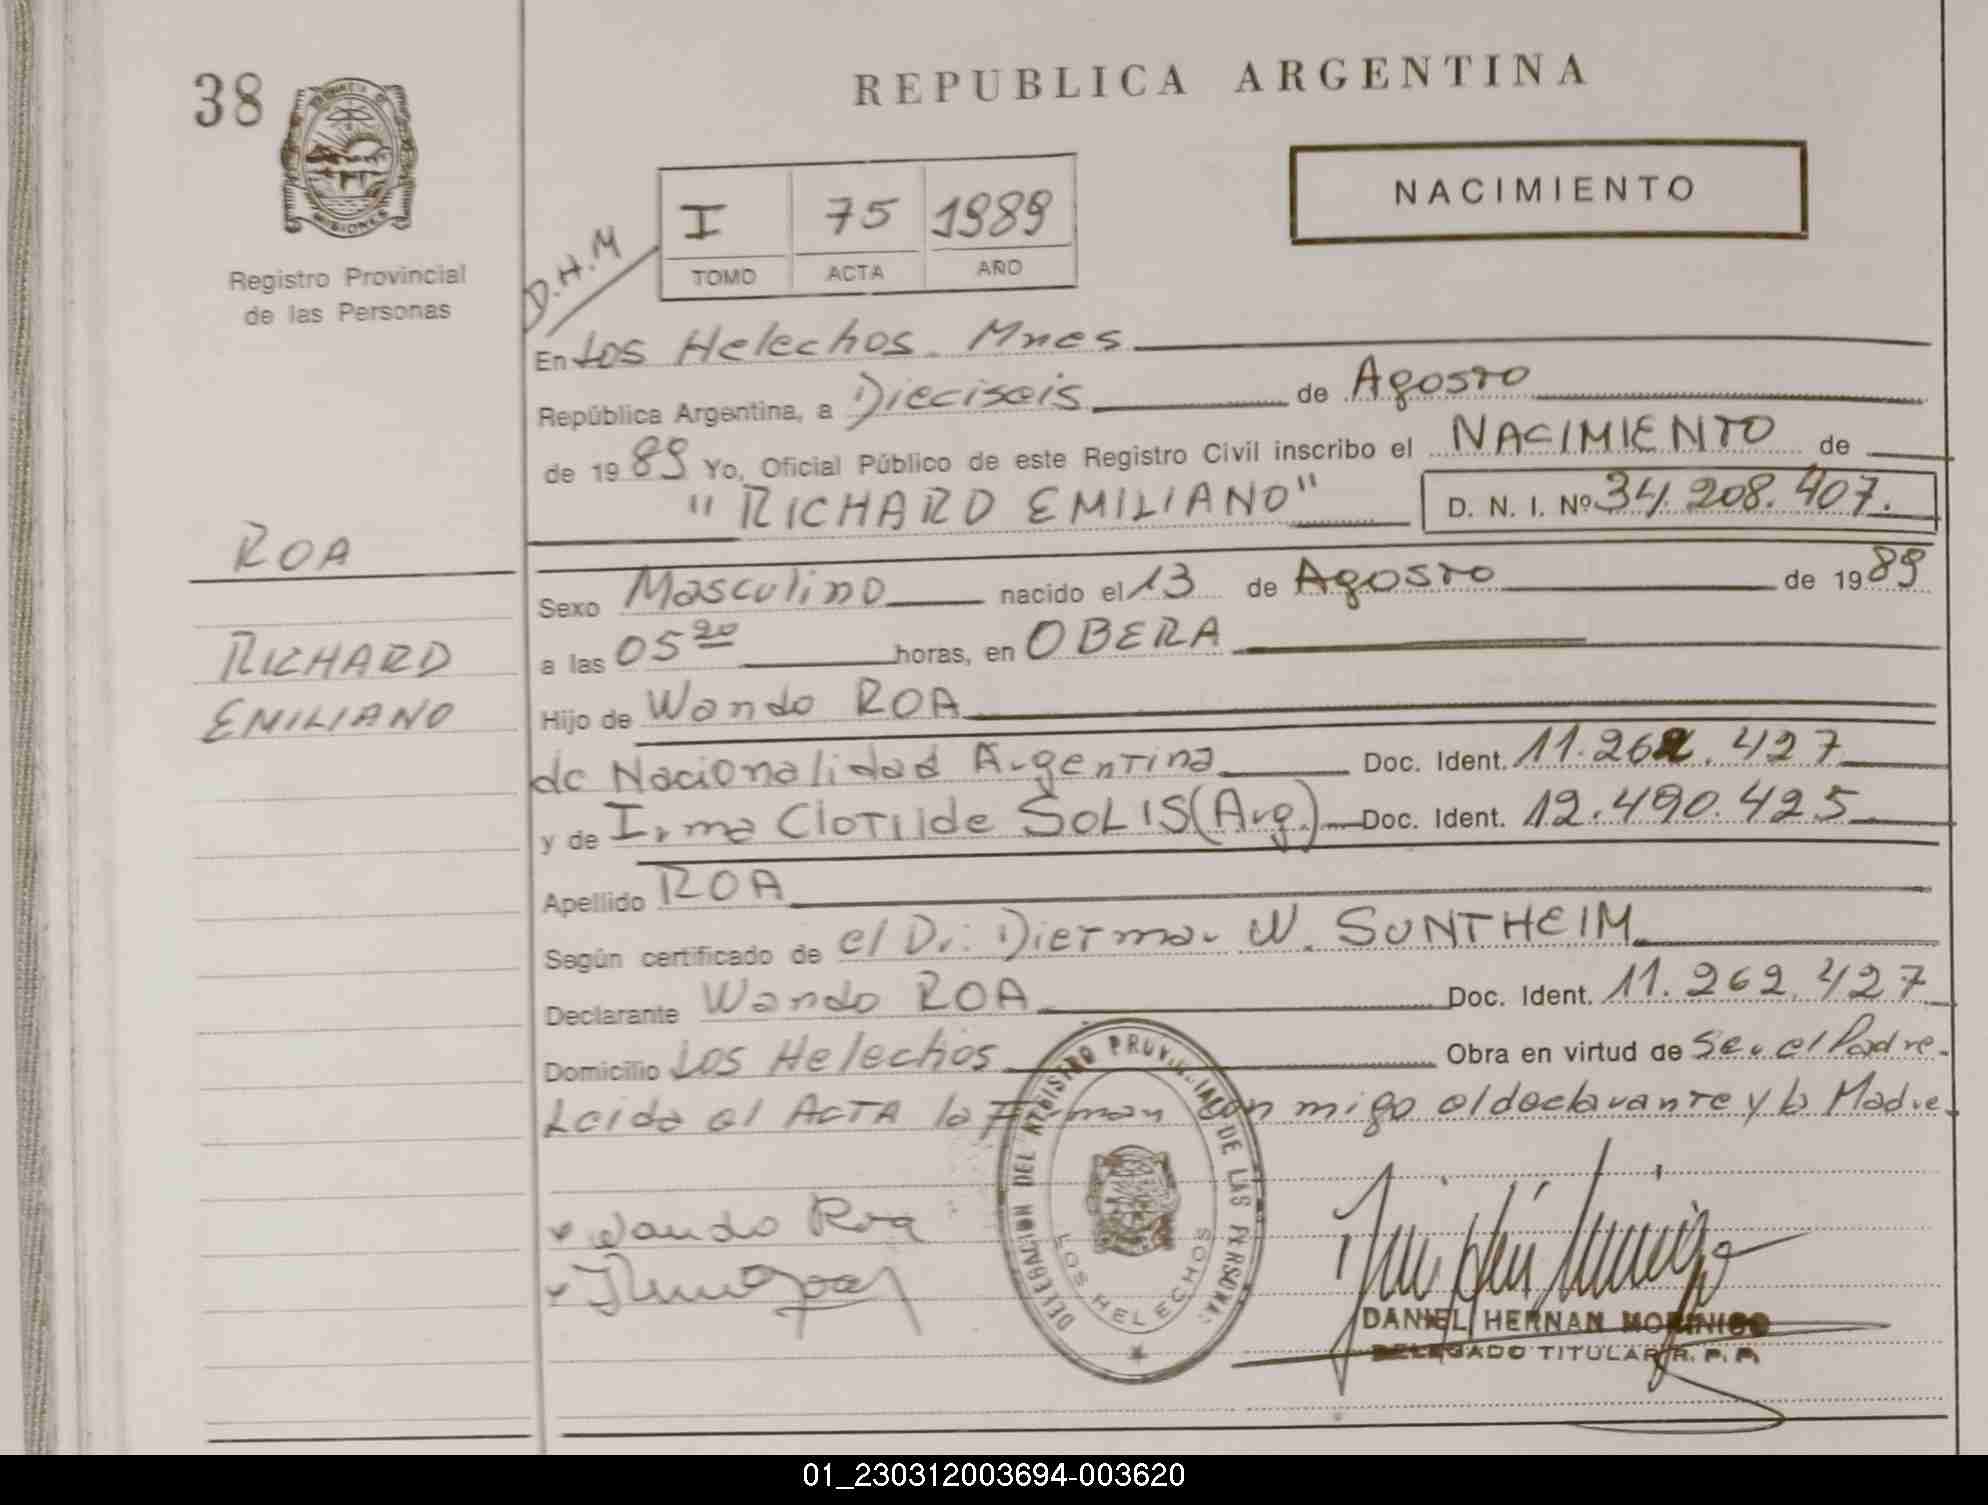 38
REPUBLICA ARGENTINA
NACIMIENTO
MISIONES
Registro Provincial
de las Personas
D.H.M
I 75 1989
TOMO ACTA AÑO
En Los Helechos. Mnes
República Argentina, a Dieciseis de Agosto
de 1989 Yo, Oficial Público de este Registro Civil inscribo el NACIMIENTO de
"RICHARD EMILIANO" D. N. I. Nº 34.208.407.
ROA
RICHARD
EMILIANO
Sexo Masculino nacido el 13 de Agosto de 1989
a las 05 20 horas, en OBERA
Hijo de Wando ROA
de Nacionalidad Argentina Doc. Ident. 11.262.427
y de Irma Clotilde SOLIS (Arg.) Doc. Ident. 12.490.425
Apellido ROA
Según certificado de el Dr: Dietmar W. SUNTHEIM
Declarante Wando ROA Doc. Ident. 11.262.427
Domicilio Los Helechos Obra en virtud de Ser el Padre.
Leida el ACTA la Firman con migo el declarante y la Madre.
Wando Roa
DELEGACION DEL REGISTRO PROVINCIAL DE LAS PERSONAS
LOS HELECHOS
DANIEL HERNAN MORINIGO
DELEGADO TITULAR R. P. P.
01_230312003694-003620